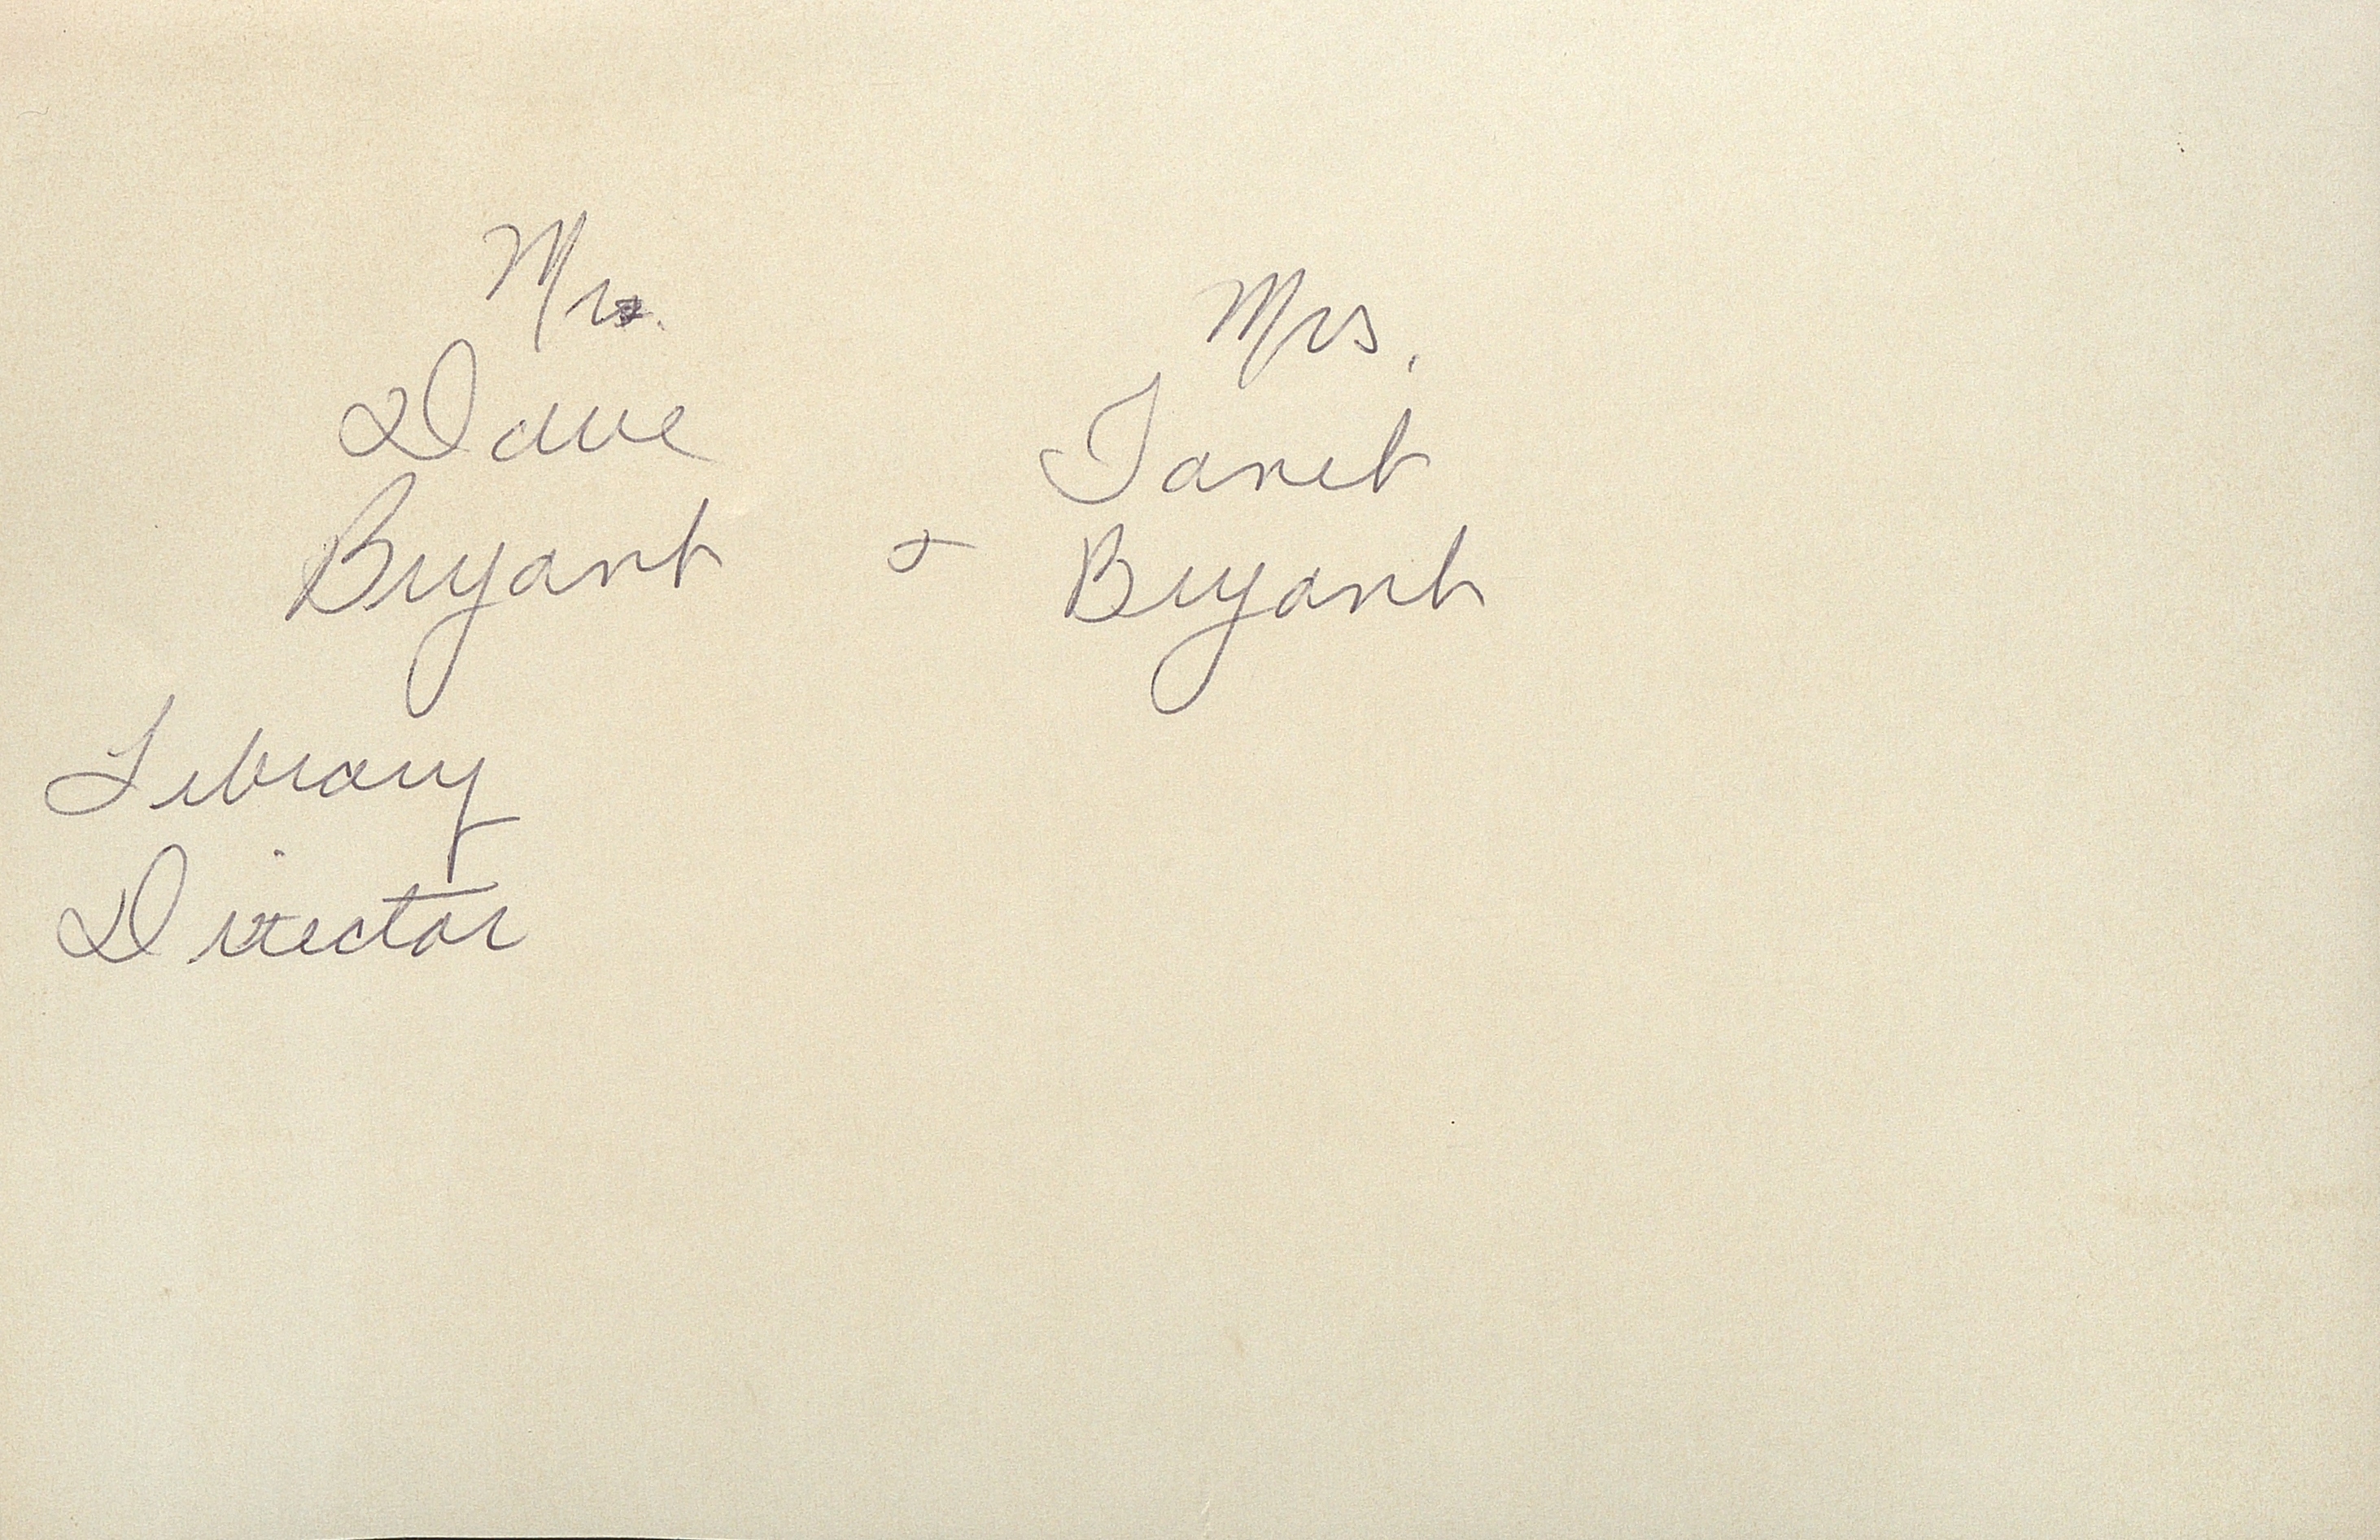 Mr.
Dave
Bryant
&
Mrs.
Janet
Bryant
Library
Director